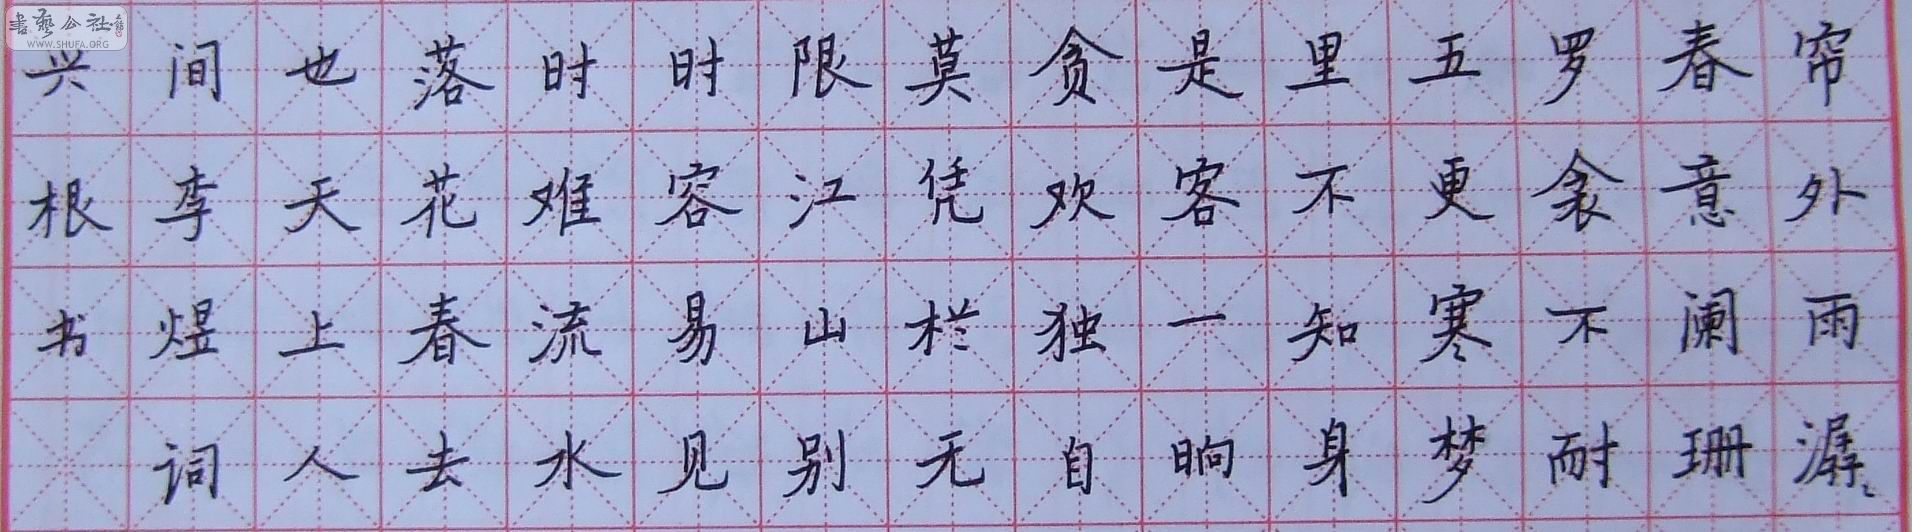 帘外雨潺々
春意阑珊
罗衾不耐
五更寒梦
里不知身
是客一晌
贪欢独自
莫凭栏无
限江山别
时容易见
时难流水
落花春去
也天上人
间李煜词
兴根书
書藝公社
WWW.SHUFA.ORG